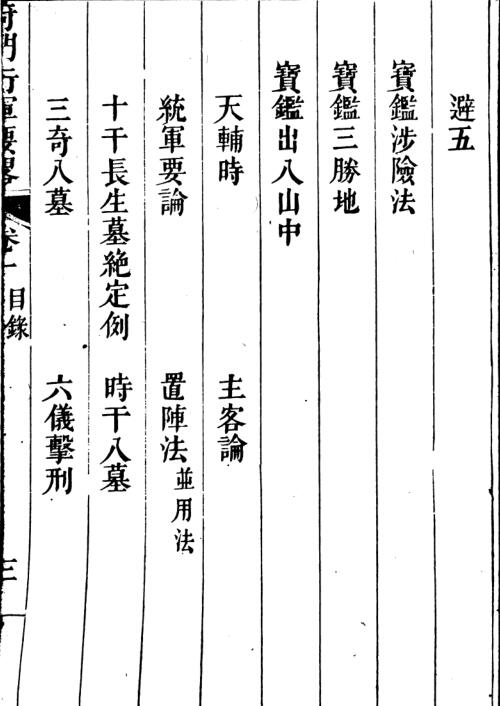 避五
寶鑑涉險法
寶鑑三勝地
寶鑑出八山中
天輔時 主客論
統軍要論 置陣法並用法
十干長生墓絶定例 時干八墓
三奇八墓 六儀擊刑
奇門行軍要畧 卷一 目錄 三